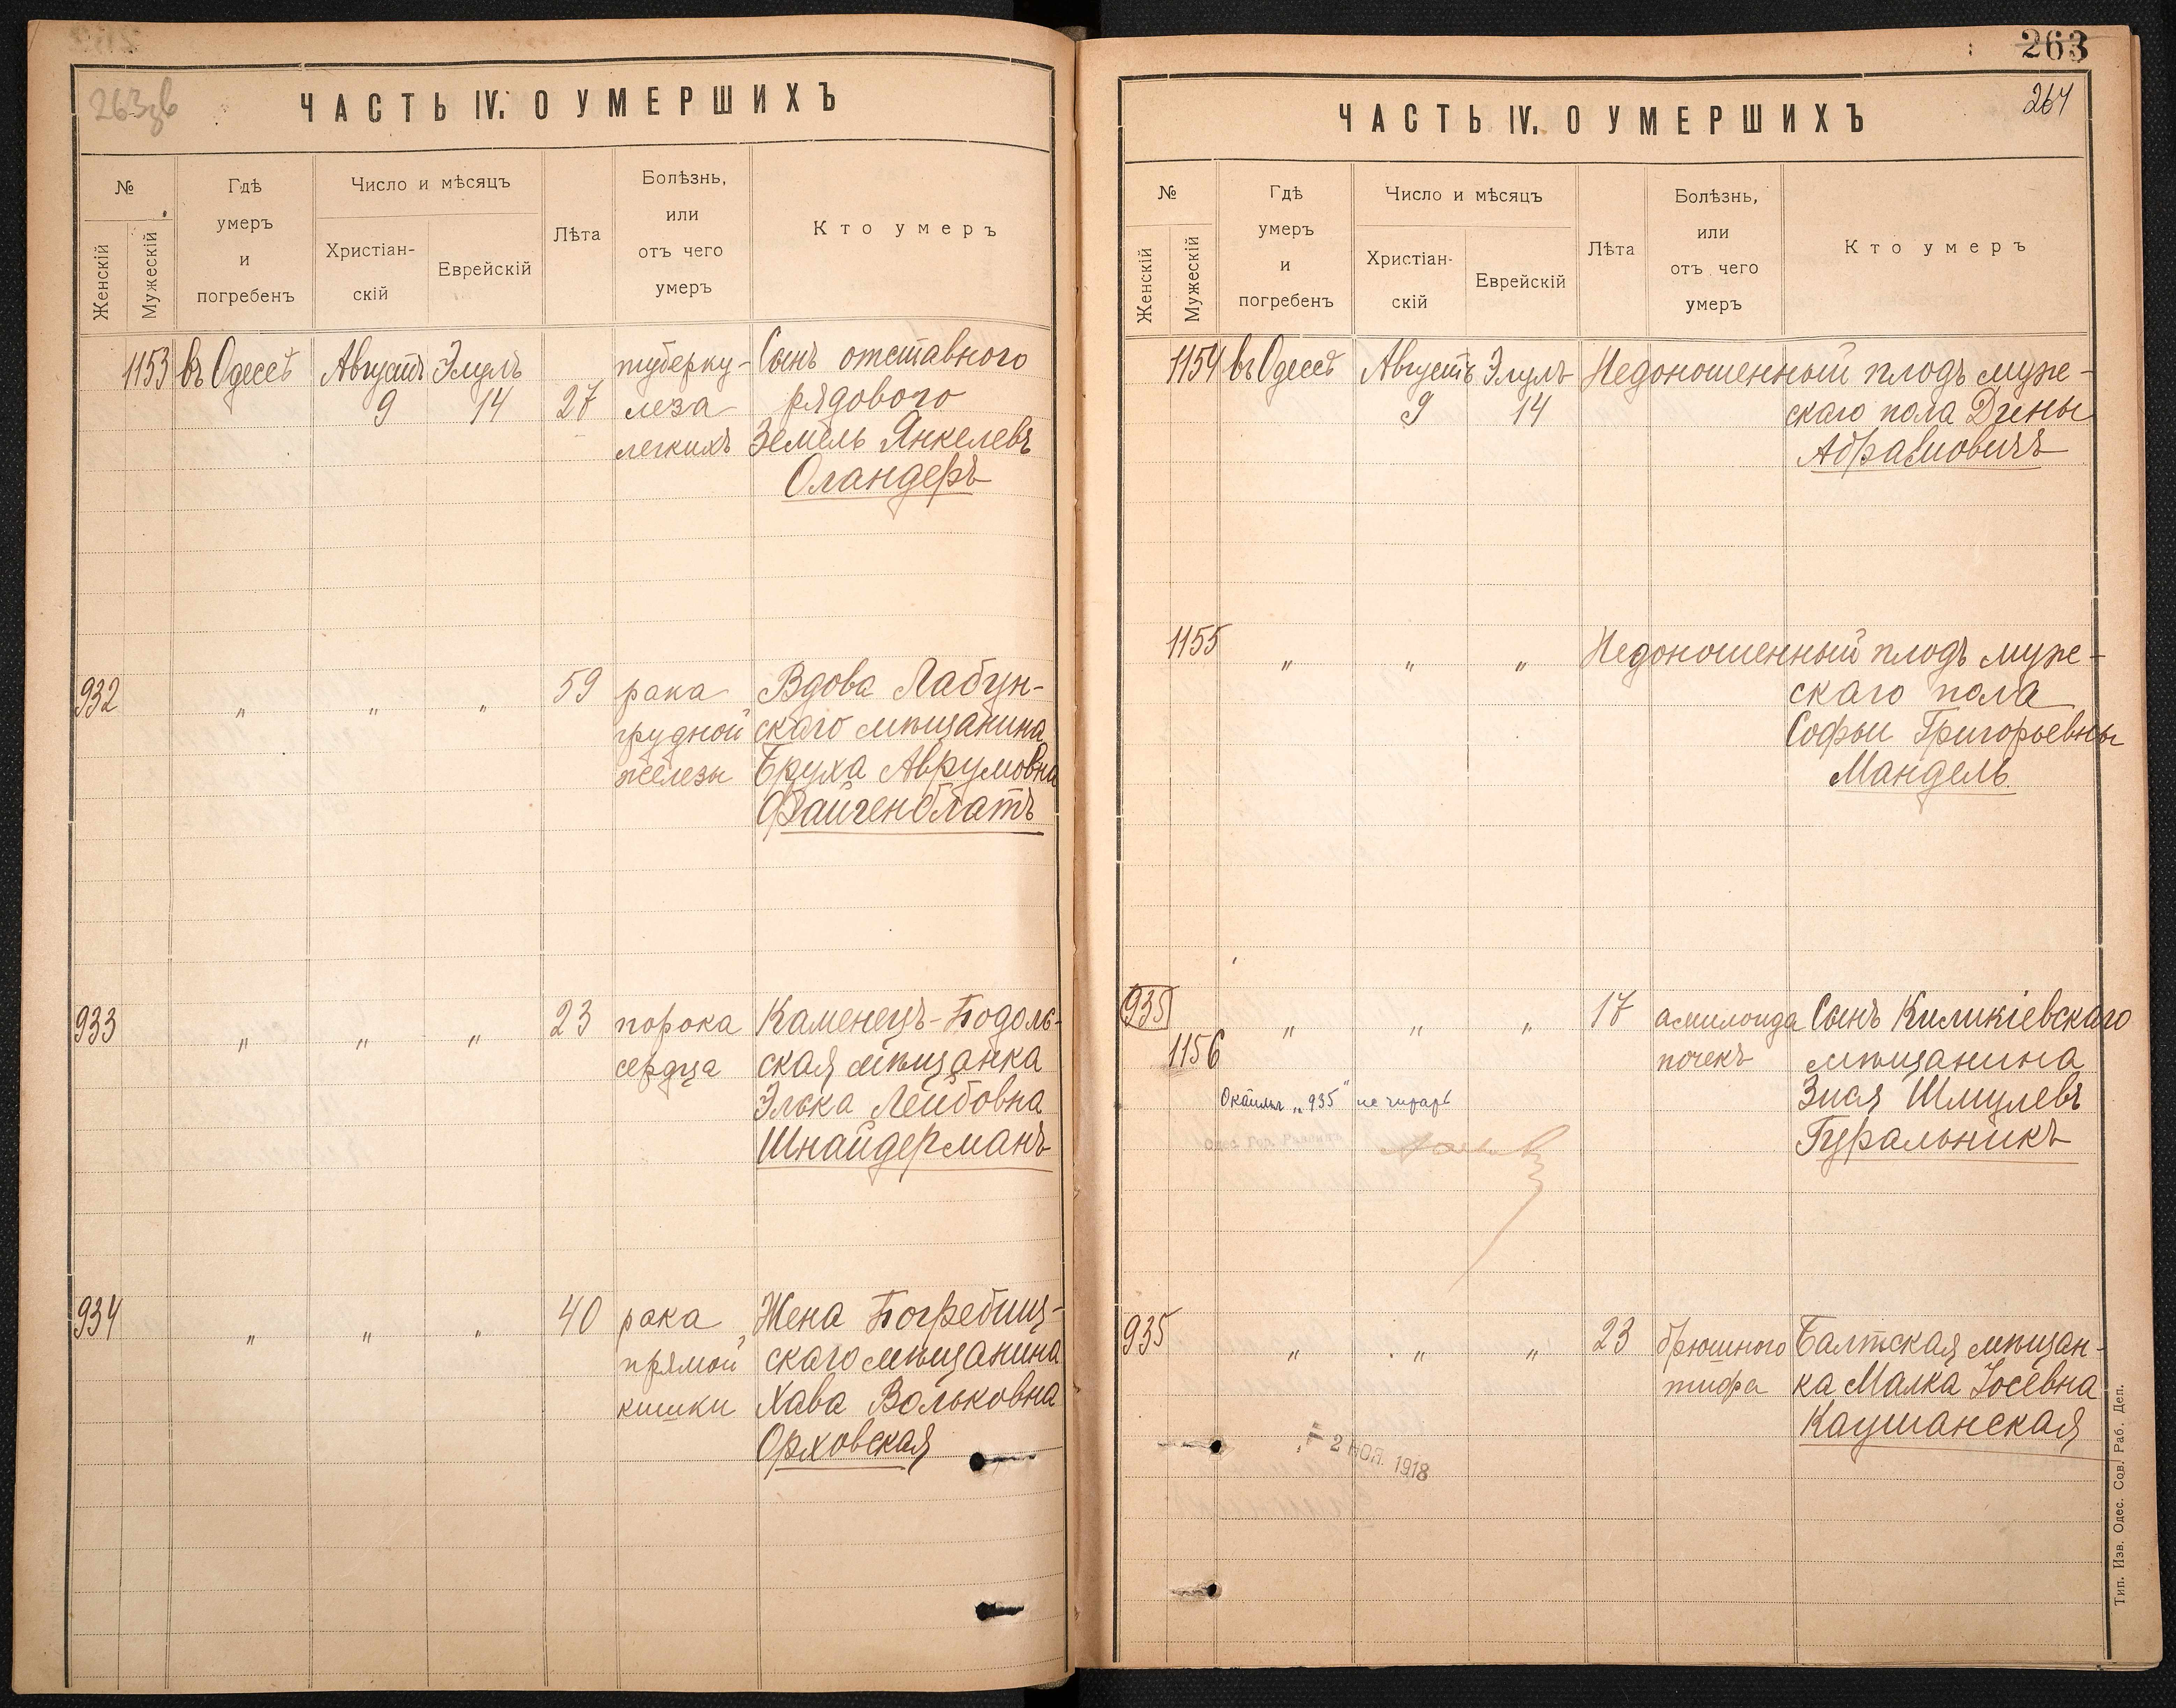 263
ЧАСТЬ IV. О УМЕРШИХЪ
№
Женскій
Мужескій
Гдѣ
умеръ
и
погребенъ
Число и мѣсяцъ
Христіан-
скій
Еврейскій
Лѣта
Болѣзнь,
или
отъ чего
умеръ
Кто умеръ
1153 въ Одессѣ Августъ Элулъ туберку- Сынъ отставного
9 14 27 леза рядового
легкихъ Земель Янкелевъ
Оландеръ
932 " " " 59 рака Вдова Лабун-
грудной скаго мѣщанина
железы Бруха Аврумовна
Файгенблатъ
933 " " " 23 порока Каменецъ-Подоль-
сердца ская мѣщанка
Элька Лейбовна
Шнайдерманъ
934 " " " 40 рака Жена Погребищ-
прямой скаго мѣщанина
кишки Хава Вольковна
Орховская
263
264
ЧАСТЬ IV. О УМЕРШИХЪ
№
Женскій
Мужескій
Гдѣ
умеръ
и
погребенъ
Число и мѣсяцъ
Христіан-
скій
Еврейскій
Лѣта
Болѣзнь,
или
отъ чего
умеръ
Кто умеръ
1154 въ Одессѣ Августъ Элулъ Недоношенный плодъ муже-
9 14 скаго пола Дины
Абрамовичъ
1155 " " " Недоношенный плодъ муже-
скаго пола
Софьи Григорьевны
Мандель.
935 " " " 17 амилоида Сынъ Киликіевскаго
1156 почекъ мѣщанина
Зися Шмулевъ
"935" не читать
Гуральникъ
Одес. Гор. Раввинъ
935 " " " 23 брюшного Балтская мѣщан-
тифа ка Малка Іосевна
Каушанская
2 НОЯ. 1918
Тип. Изв. Одес. Сов. Раб. Деп.